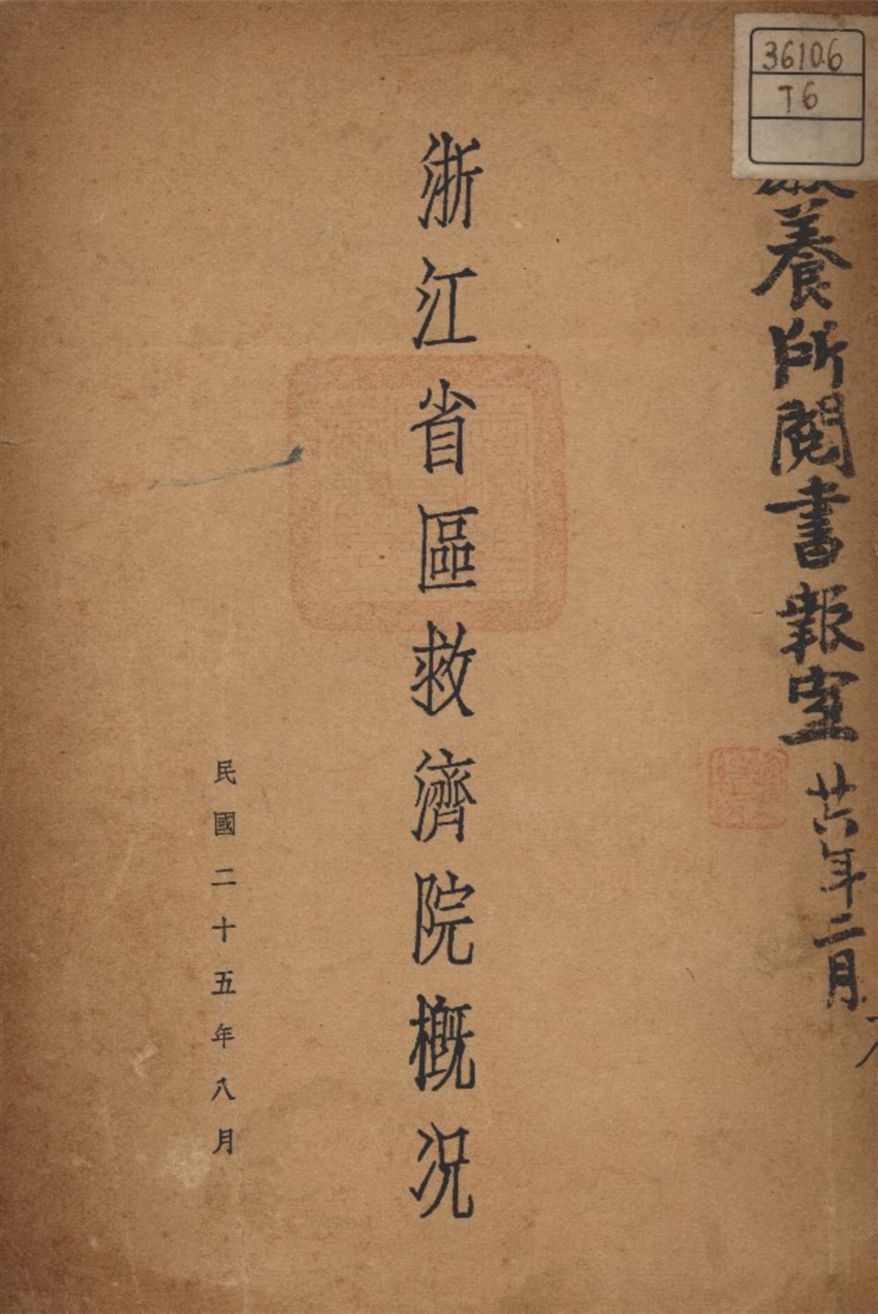 36106
T6
養所閱書報室 廿六年二月
浙江省區救濟院概况
民國二十五年八月